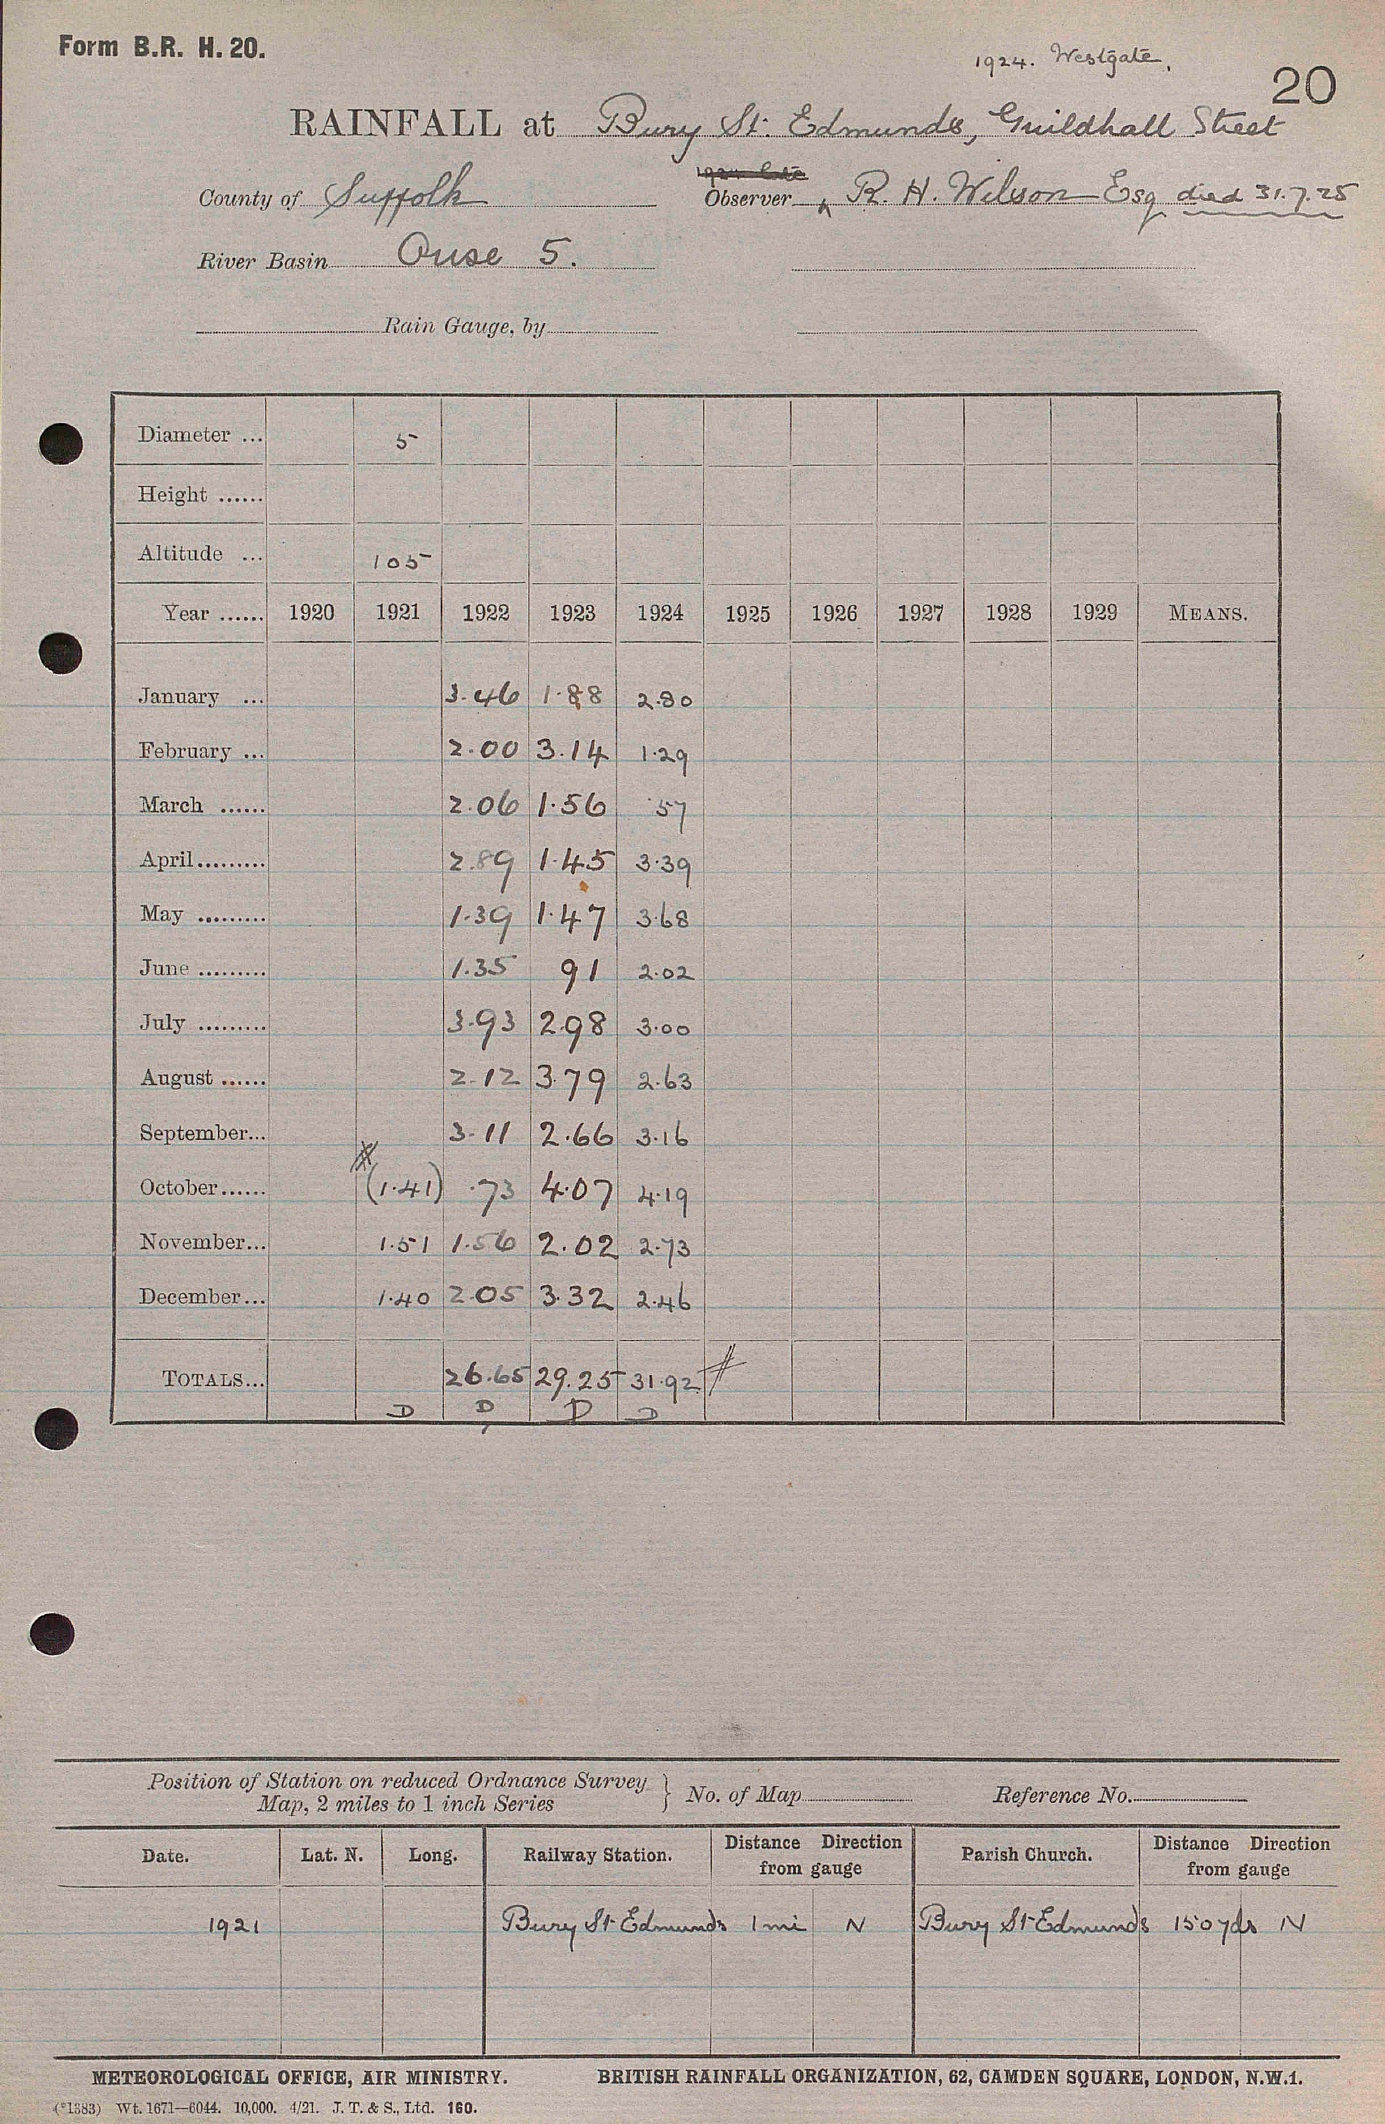 Form B.R. H. 20.
1924. Westgate.
20
RAINFALL at Bury St. Edmunds, Guildhall Street
County of Suffolk
Observer R. H. Wilson Esq died 31.7.25
River Basin Ouse 5.
Rain Gauge, by
Diameter ... 5
Height ......
Altitude ... 105
Year ...... 1920 1921 1922 1923 1924 1925 1926 1927 1928 1929 MEANS.
January ... 3.46 1.88 2.80
February ... 2.00 3.14 1.29
March ...... 2.06 1.56 .57
April......... 2.89 1.45 3.39
May ......... 1.39 1.47 3.68
June ......... 1.35 91 2.02
July ......... 3.93 2.98 3.00
August ...... 2.12 3.79 2.63
September... 3.11 2.66 3.16
October...... (1.41) .73 4.07 4.19
November... 1.51 1.56 2.02 2.73
December... 1.40 2.05 3.32 2.46
TOTALS... 26.65 29.25 31.92
D D D D
Position of Station on reduced Ordnance Survey
Map, 2 miles to 1 inch Series } No. of Map Reference No.
Date. Lat. N. Long. Railway Station. Distance Direction from gauge Parish Church. Distance Direction from gauge
1921 Bury St Edmunds 1 mi N Bury St Edmunds 150 yds N
METEOROLOGICAL OFFICE, AIR MINISTRY. BRITISH RAINFALL ORGANIZATION, 62, CAMDEN SQUARE, LONDON, N.W.1.
(*1383) Wt. 1671—6044. 10,000. 4/21. J. T. & S., Ltd. 160.